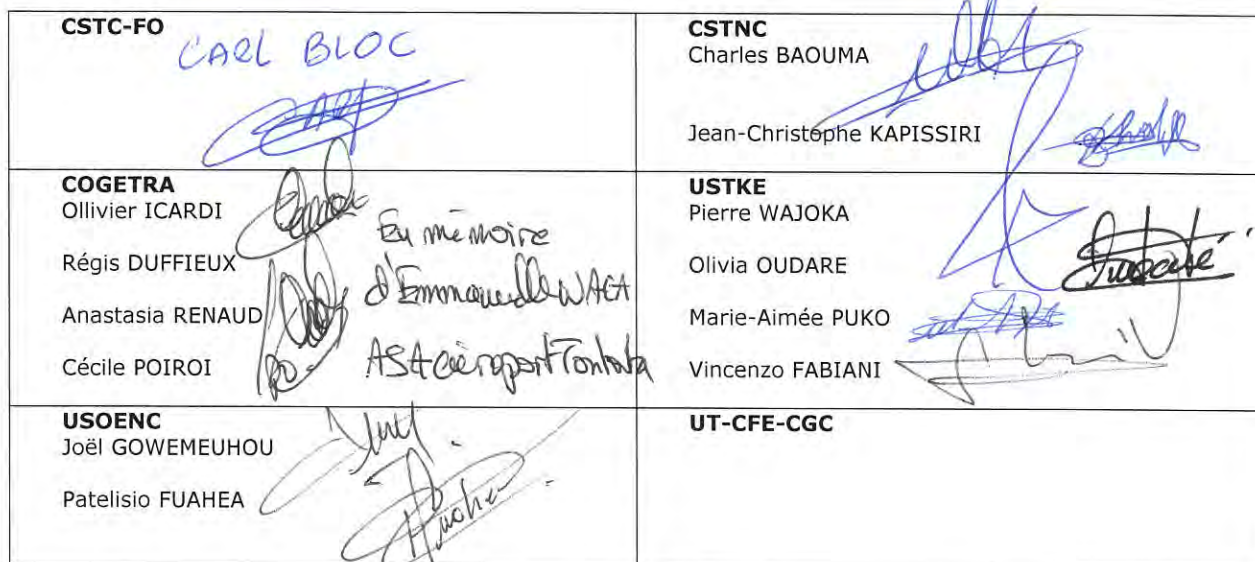 CSTC-FO
CARL BLOC
CSTNC
Charles BAOUMA
Jean-Christophe KAPISSIRI
COGETRA
Ollivier ICARDI
Régis DUFFIEUX
Anastasia RENAUD
Cécile POIROI
En mémoire
d'Emmanuelle WAEA
ASA aéroport Tontouta
USTKE
Pierre WAJOKA
Olivia OUDARE
Marie-Aimée PUKO
Vincenzo FABIANI
USOENC
Joël GOWEMEUHOU
Patelisio FUAHEA
UT-CFE-CGC